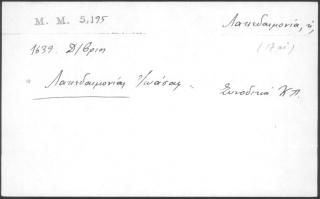 M. M. 5,195
Λακεδαιμονία, ἡ,
(17 αἰ)
1639. Δ/βριη
Λακεδαιμονίας Ἰωάσαφ.
Συνοδικά Κ.Π.